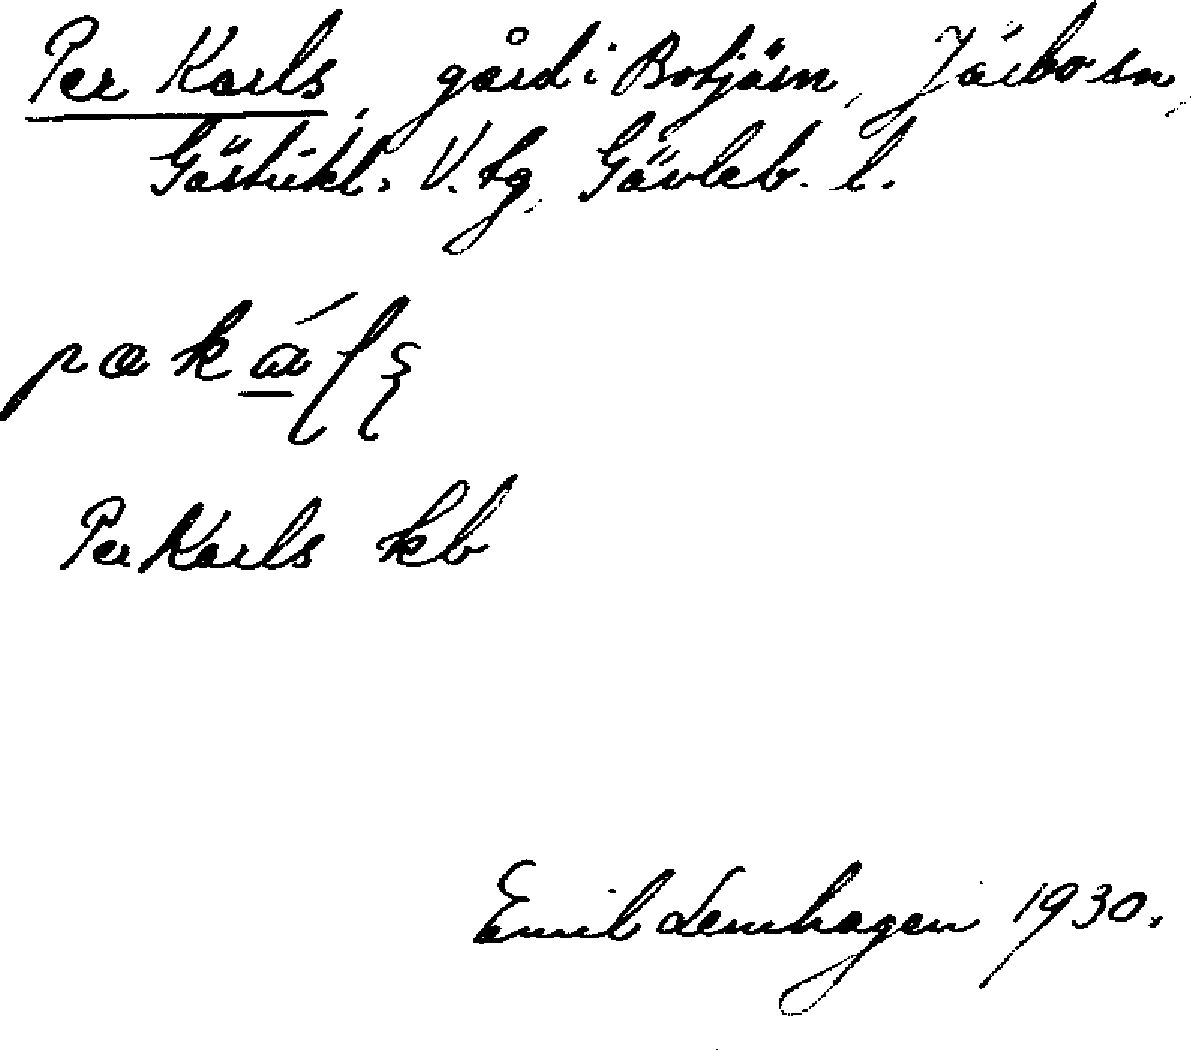 Per Karls, gård i Botjärn, Järbo sn,
Gästrikl. V. tg, Gävleb. l.
Per Karls kb
Emil Lernhagen 1930.